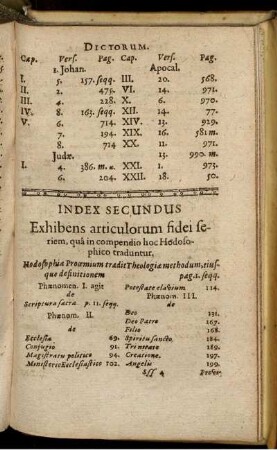 DICTORUM.
Cap. Vers. Pag. Cap. Vers. Pag.
1. Johan. Apocal.
I. 5. 157. seqq. III. 20. 568.
II. 2. 475. VI. 14. 971.
III. 4. 228. X. 6. 970.
IV. 8. 163. seqq. XII. 14. 77.
V. 6. 714. XIV. 13. 929.
7. 194. XIX. 16. 581 m.
8. 714 XX. 11. 97.
Judæ. 13. 990. m.
I. 4. 386. m. a. XXI. 1. 973.
6. 204. XXII. 18. 50.
INDEX SECUNDUS
Exhibens articulorum fidei se-
riem, quâ in compendio hoc Hodoso-
phico traduntur,
Hodosophiæ Proœmium tradit Theologiæ methodum, ejus-
que definitionem pag. 1. seqq.
Phænomen. I. agit Potestate clavium 114.
de Phænom. III.
Scriptura sacra p. 11. seqq. de
Phænom. II. Deo 131.
de Deo Patre 167.
Filio 168.
Ecclesiâ 69. Spiritu sancto. 184.
Conjugio 91. Trinitate 189.
Magistratu politico 94. Creatione. 197.
Ministerio Ecclesiastico 102. Angelis 199.
Sss 4 Prover.